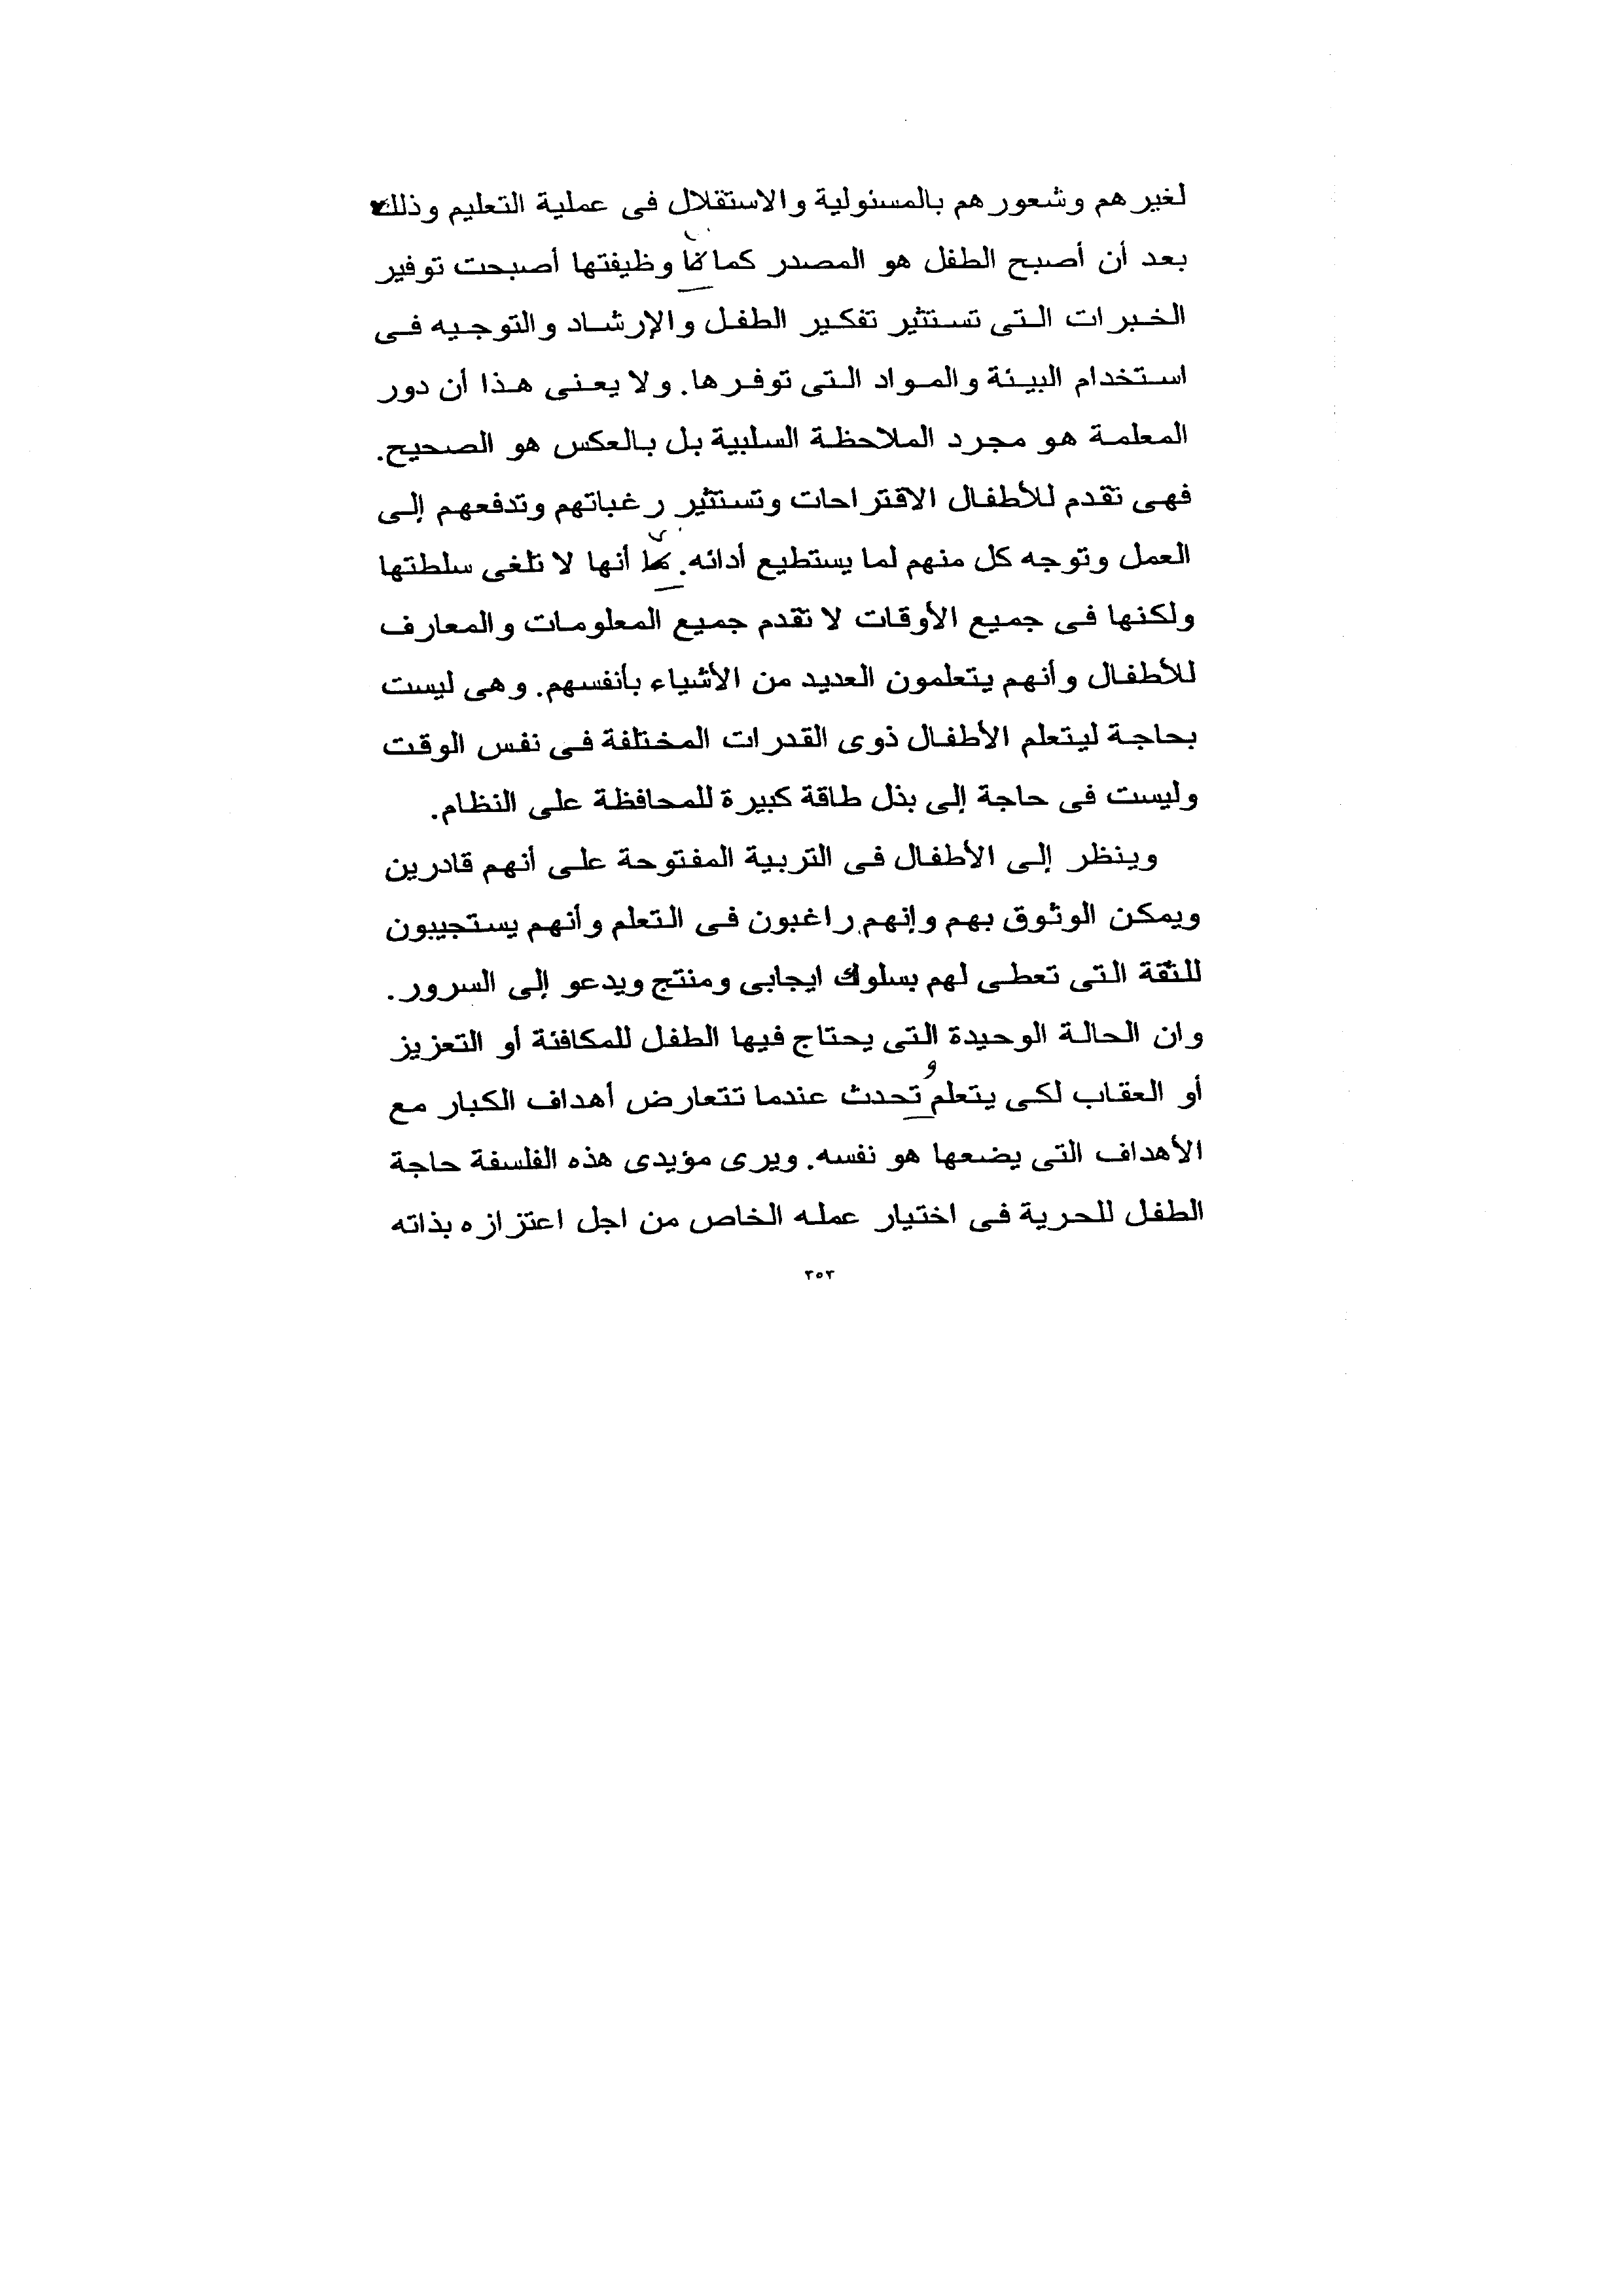 لغيرهم وشعورهم بالمسئولية والاستقلال فى عملية التعليم وذلك
بعد أن أصبح الطفل هو المصدر كما وظيفتها أصبحت توفير
الخبرات التى تستثير تفكير الطفل والإرشاد والتوجيه فى
استخدام البيئة والمواد التى توفرها. ولا يعنى هذا أن دور
المعلمة هو مجرد الملاحظة السلبية بل بالعكس هو الصحيح.
فهى تقدم للأطفال الاقتراحات وتستثير رغباتهم وتدفعهم إلى
العمل وتوجه كل منهم لما يستطيع أدائه. أنها لا تلغى سلطتها
ولكنها فى جميع الأوقات لا تقدم جميع المعلومات والمعارف
للأطفال وأنهم يتعلمون العديد من الأشياء بأنفسهم. وهى ليست
بحاجة ليتعلم الأطفال ذوى القدرات المختلفة فى نفس الوقت
وليست فى حاجة إلى بذل طاقة كبيرة للمحافظة على النظام.
وينظر إلى الأطفال فى التربية المفتوحة على أنهم قادرين
ويمكن الوثوق بهم وإنهم راغبون فى التعلم وأنهم يستجيبون
للثقة التى تعطى لهم بسلوك ايجابى ومنتج ويدعو إلى السرور.
وان الحالة الوحيدة التى يحتاج فيها الطفل للمكافئة أو التعزيز
أو العقاب لكى يتعلم و تحدث عندما تتعارض أهداف الكبار مع
الأهداف التى يضعها هو نفسه. ويرى مؤيدى هذه الفلسفة حاجة
الطفل للحرية فى اختيار عمله الخاص من اجل اعتزازه بذاته
٣٥٣